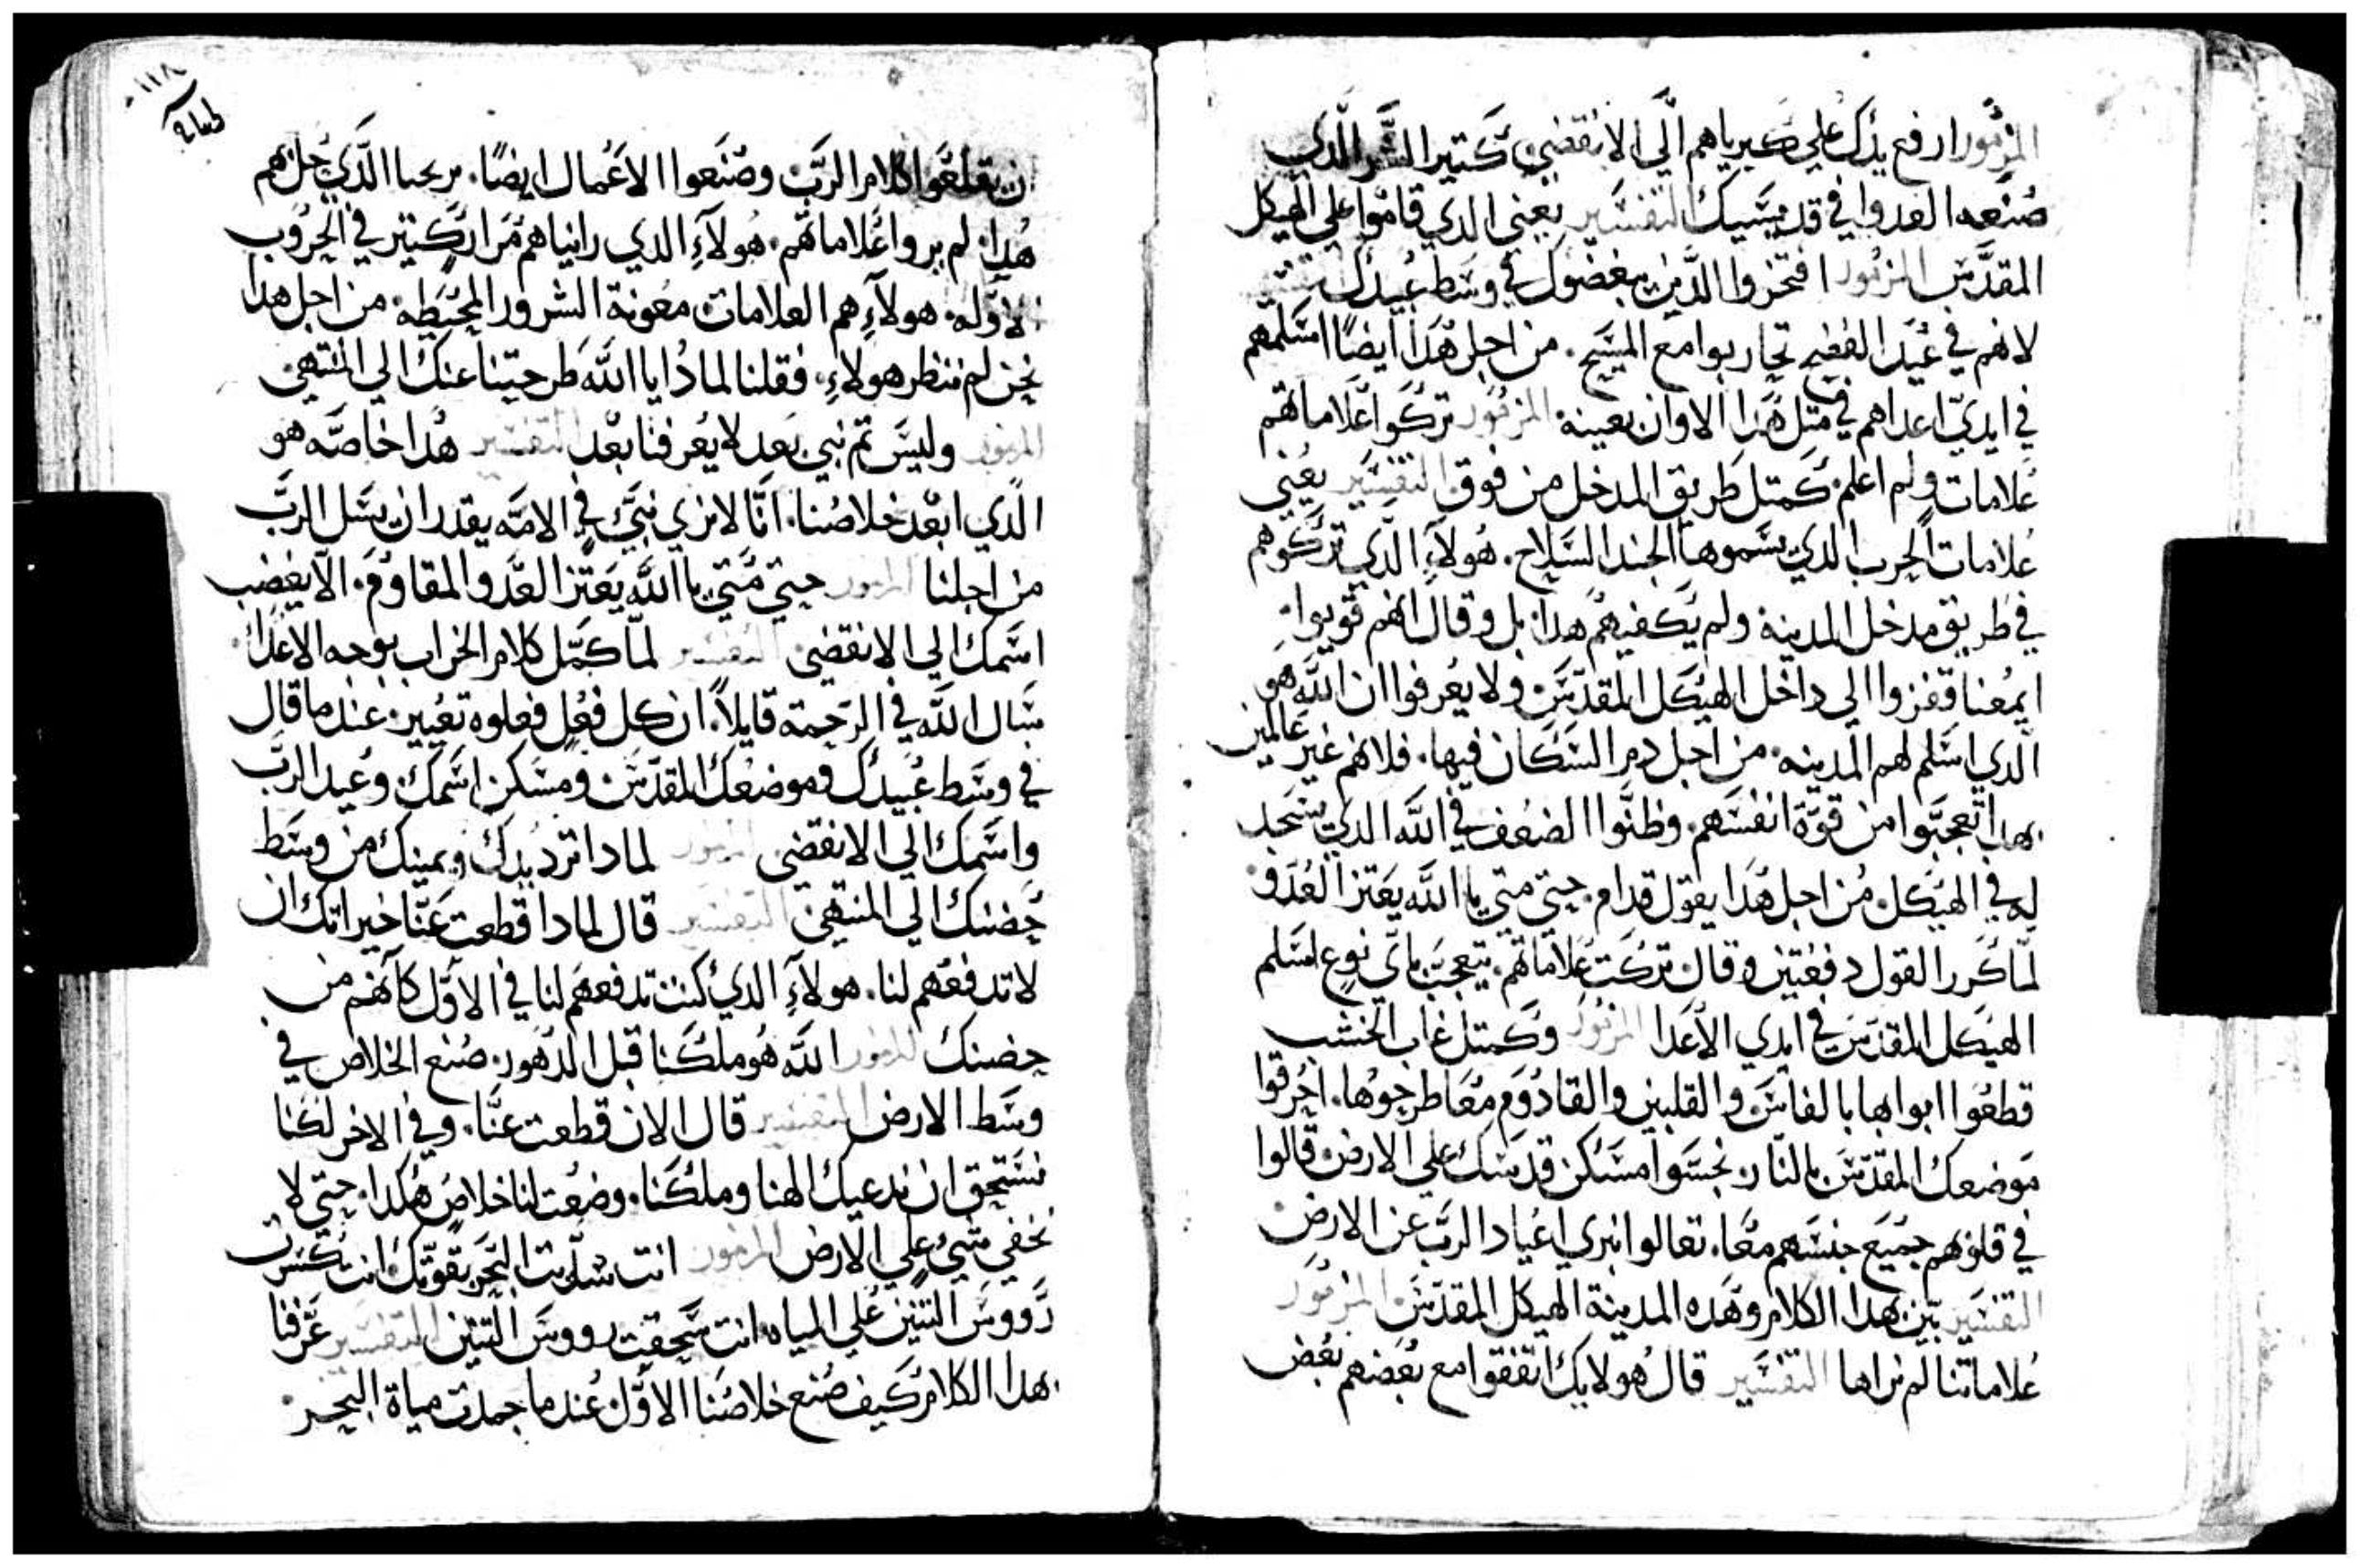 المزمور ارفع يدك علي كبرياهم الي الانقضي، كتير الشر الدي
صنعه العدوا في قديسيك التفسير يعني الدي قاموا علي الهيكل
المقدس المزمور افتخروا الدين يبغضوك في وسط عيدك التفسير
لانهم في عيد الفضيح تحاربوا مع المسيح. من اجل هدا ايضًا اسلمهم
في ايدي اعداهم في متل هدا الاوان بعينه. المزمور تركوا علاماتهم
علامات ولم اعلم. كمتل طريق المدخل من فوق التفسير يعني
علامات الحرب الدي يسموها الجند السلاح. هولآءِ الدي تركوهم
في طريق مدخل المدينه ولم يكفيهم هدا. بل وقال انهم قويوا.
ايمعنا قفزوا الي داخل الهيكل المقدس ولا يعرفوا ان الله هو
الدي اسلم لهم المدينه. من اجل دم السكان فيها. فلانهم غير عالمين
بهدا تعجبوا من قوة انفسهم. وظنوا الضعف في الله الدي يسجد
له في الهيكل. من اجل هدا يقول قدام. حيتي متي يا الله يعتز العدو
لما كرر القول دفعتين وقال تركت علاماتهم. يتعجب باي نوع اسلم
الهيكل المقدس في ايدي الاعدا المزمور وكمتل غاب الخشب
قطعوا ابوابها بالفاس والقلبين والقادوم معًا طرحوها. احرقوا
موضعك المقدس بالنار نجسوا مسكن قدسك علي الارض قالوا
في قلوبهم جميع جنسهم معًا. تعالوا نبري اعياد الرب عن الارض
التفسير بين هدا الكلام وهده المدينة الهيكل المقدس المزمور
علاماتنا لم نراها التفسير قال هولايك اتفقوا مع بعضهم بعض
ان يقلعوا كلام الرب وصنعوا الاعمال ايضًا. الدي
هدا. لم يروا علاماتهم. هولآءِ الدي رانياهم مرار كتير في الحروب
الاوله. هولآءِ هم العلامات معونة الشرور المحيطه. من اجل هدا
نحن لم ننظر هولاءِ. فقلنا لمادا يا الله طرحيتنا عنك الي المنتهي
المزمور وليس تم نبي بعد لا يعرفنا بعد التفسير هدا خاصه هو
الدي ابعد خلاصنا. انا لا نري نبي في الامه يقدر ان يسل الرب
من اجلنا المزمور حيتي متي يا الله يعتز العدو المقاوم. الا يغضب
اسمك الي الانقضي التفسير لما كمل كلام الخراب بوجه الاعدا.
سال الله في الرحمة قايلاً. ان كل فعل فعلوه تعيير. عند ما قال
في وسط عبيدك وموضعك المقدس ومسكن اسمك وعيد الرب
واسمك الي الانقضي المزمور لمادا ترد يدك ويمينك من وسط
حضنك الي المنتهي التفسير قال لمادا قطعت عنا خيراتك ان
لا تدفعهم لنا. هولآءِ الدي كنت تدفعهم لنا في الاول كانهم من
حضنك المزمور الله هو ملكنا قبل الدهور. صنع الخلاص في
وسط الارض التفسير قال الان قطعت عنا. وفي الاخر لكنا
نستحق ان ندعيك الهنا وملكنا. وضعت لنا خلاص هكدا. حيتي لا
يخفي شيء علي الارض المزمور انت شديت البحر بقوتك انت كسرت
رووس التنين علي المياه انت سحقت رووس التنين التفسير عرفنا
بهدا الكلام كيف صنع خلاصنا الاول عند ما جمدت مياة البحر.